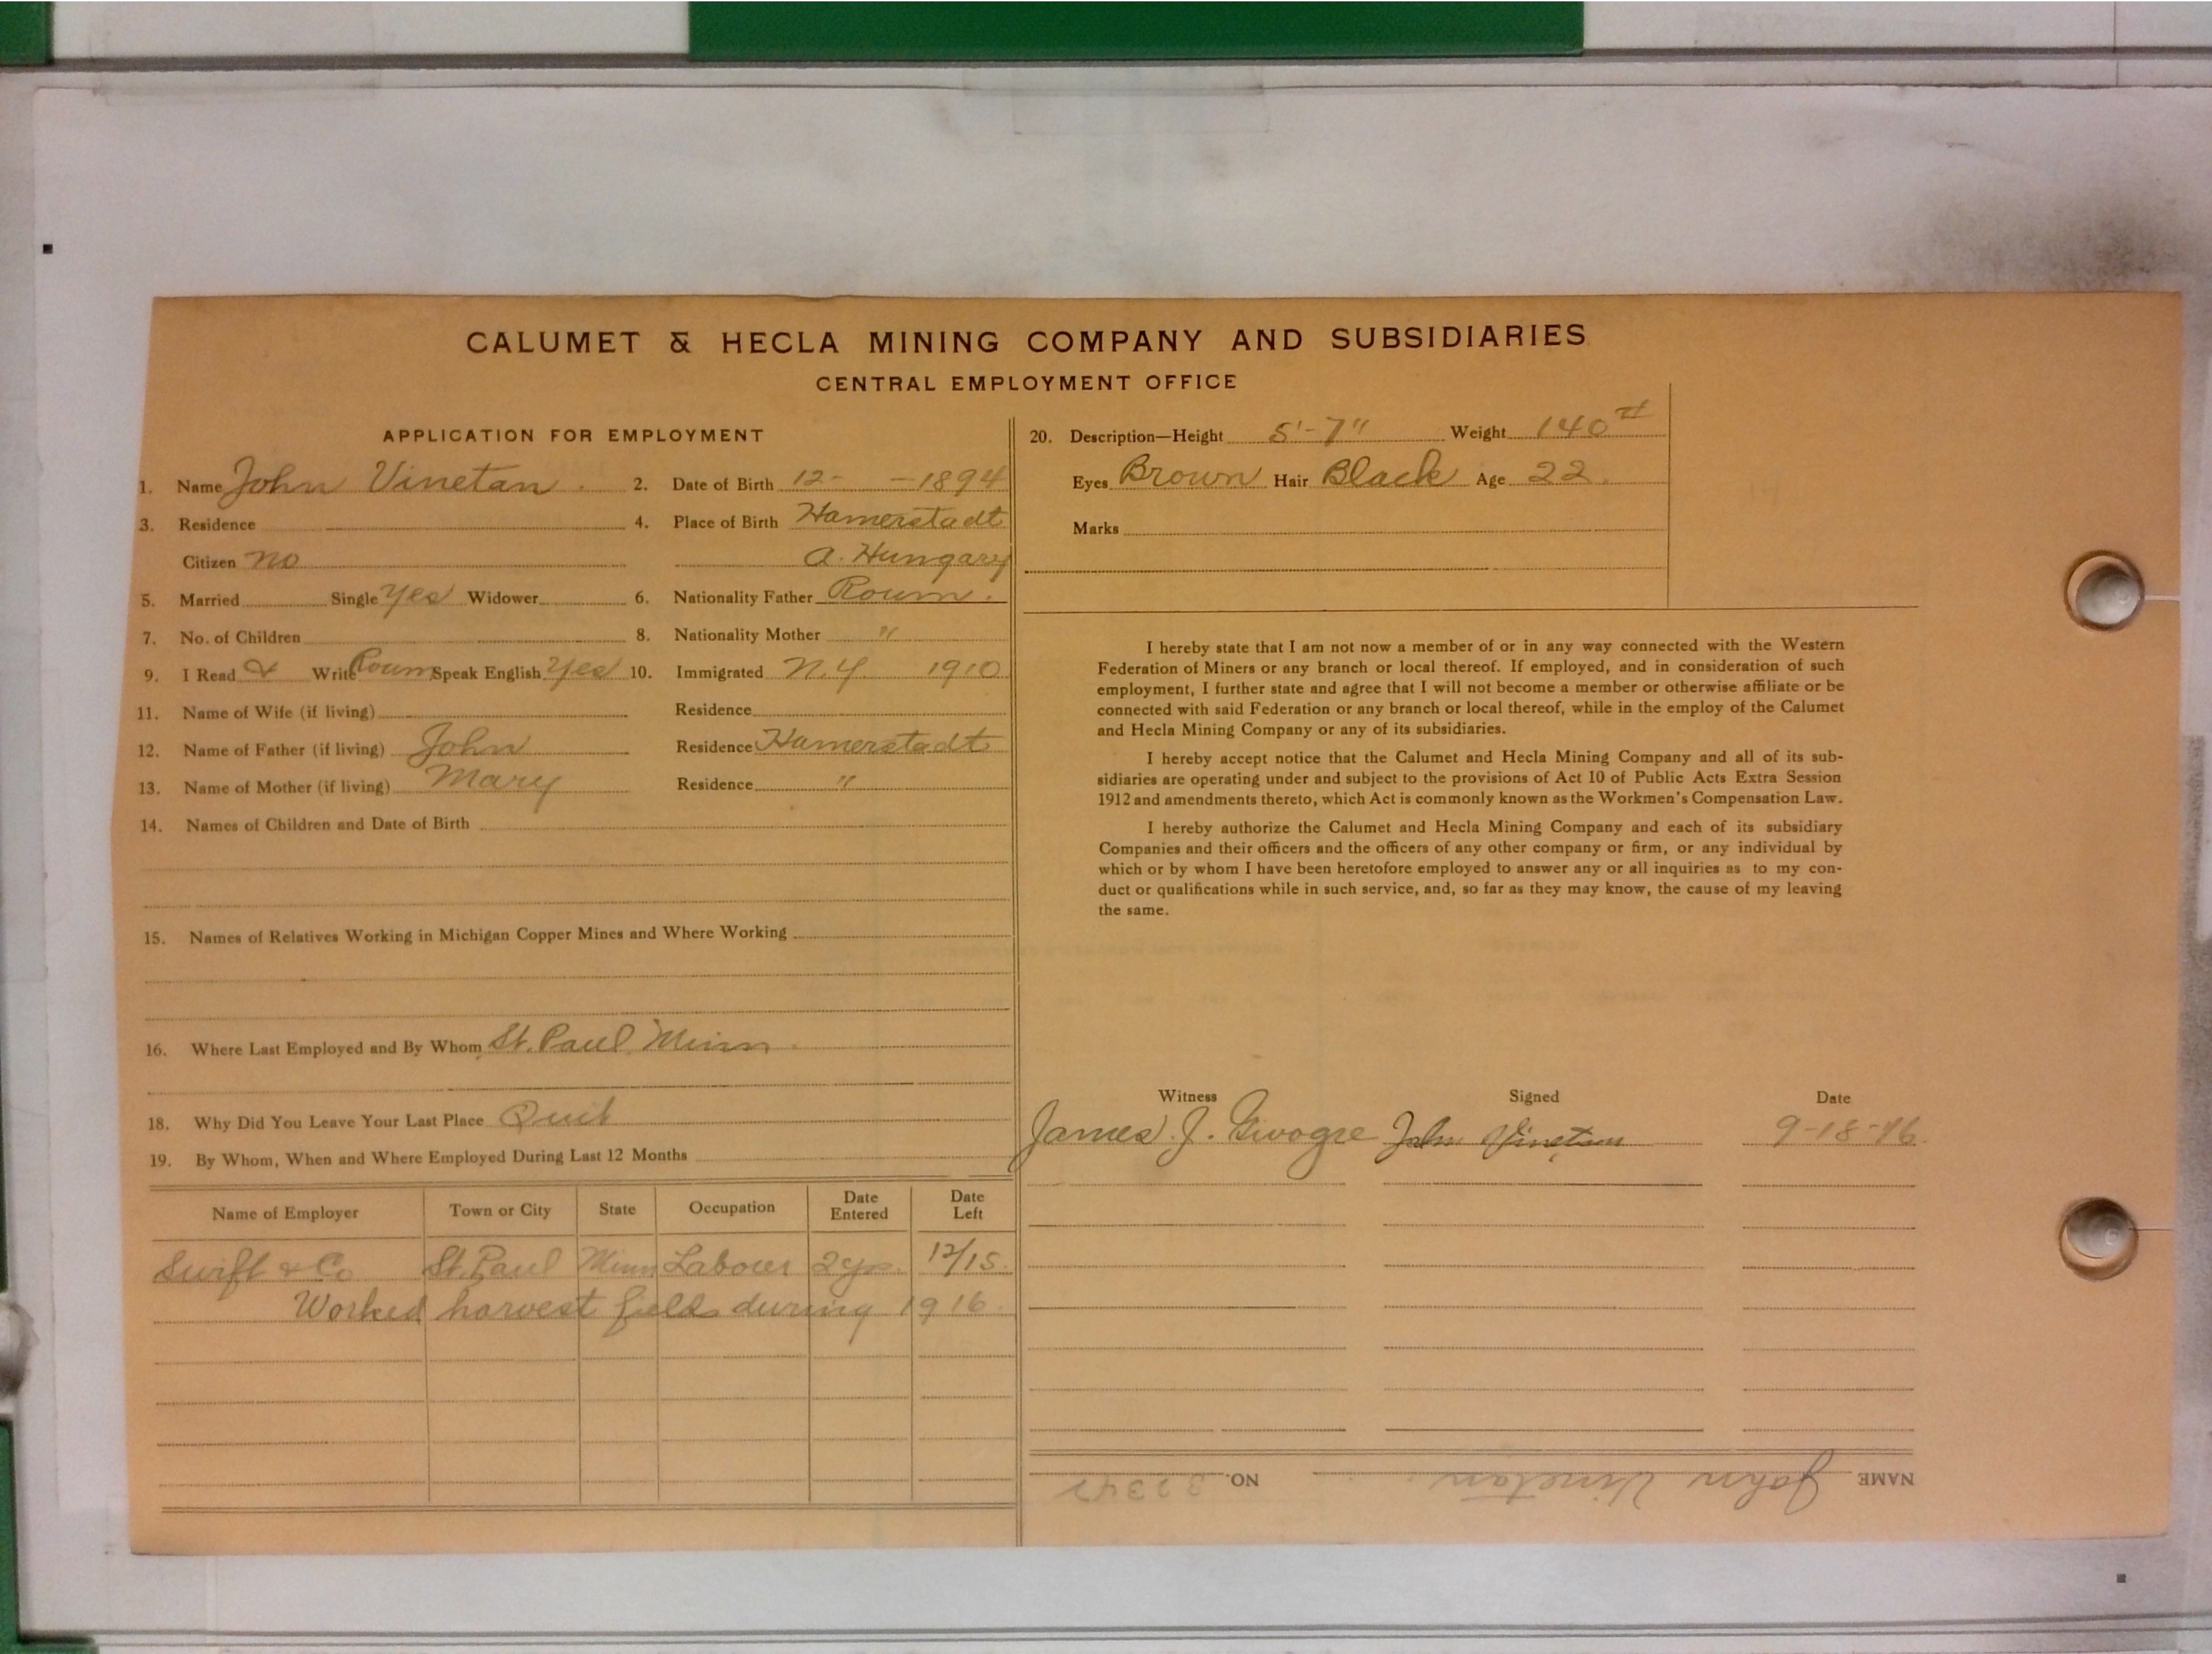 CALUMET & HECLA MINING COMPANY AND SUBSIDIARIES
CENTRAL EMPLOYMENT OFFICE
APPLICATION FOR EMPLOYMENT
1. Name John Vinetan . 2. Date of Birth 12- -1894
3. Residence 4. Place of Birth Hamerstadt
Citizen no a. Hungary
5. Married Single Yes Widower 6. Nationality Father Roum.
7. No. of Children 8. Nationality Mother "
9. I Read & Write Roum Speak English Yes 10. Immigrated N.Y. 1910
11. Name of Wife (if living) Residence
12. Name of Father (if living) John Residence Hamerstadt
13. Name of Mother (if living) Mary Residence "
14. Names of Children and Date of Birth
15. Names of Relatives Working in Michigan Copper Mines and Where Working
16. Where Last Employed and By Whom St. Paul Minn.
18. Why Did You Leave Your Last Place Quit
19. By Whom, When and Where Employed During Last 12 Months
Name of Employer Town or City State Occupation Date Entered Date Left
Swift & Co St. Paul Minn Labour 2 yrs. 12/15
Worked harvest fields during 1916.
20. Description—Height 5'-7" Weight 140 #
Eyes Brown Hair Black Age 22.
Marks
I hereby state that I am not now a member of or in any way connected with the Western
Federation of Miners or any branch or local thereof. If employed, and in consideration of such
employment, I further state and agree that I will not become a member or otherwise affiliate or be
connected with said Federation or any branch or local thereof, while in the employ of the Calumet
and Hecla Mining Company or any of its subsidiaries.
I hereby accept notice that the Calumet and Hecla Mining Company and all of its sub-
sidiaries are operating under and subject to the provisions of Act 10 of Public Acts Extra Session
1912 and amendments thereto, which Act is commonly known as the Workmen's Compensation Law.
I hereby authorize the Calumet and Hecla Mining Company and each of its subsidiary
Companies and their officers and the officers of any other company or firm, or any individual by
which or by whom I have been heretofore employed to answer any or all inquiries as to my con-
duct or qualifications while in such service, and, so far as they may know, the cause of my leaving
the same.
Witness Signed Date
James J. John Vinetan 9-18-16.
NAME John Vinetan. NO. 32347